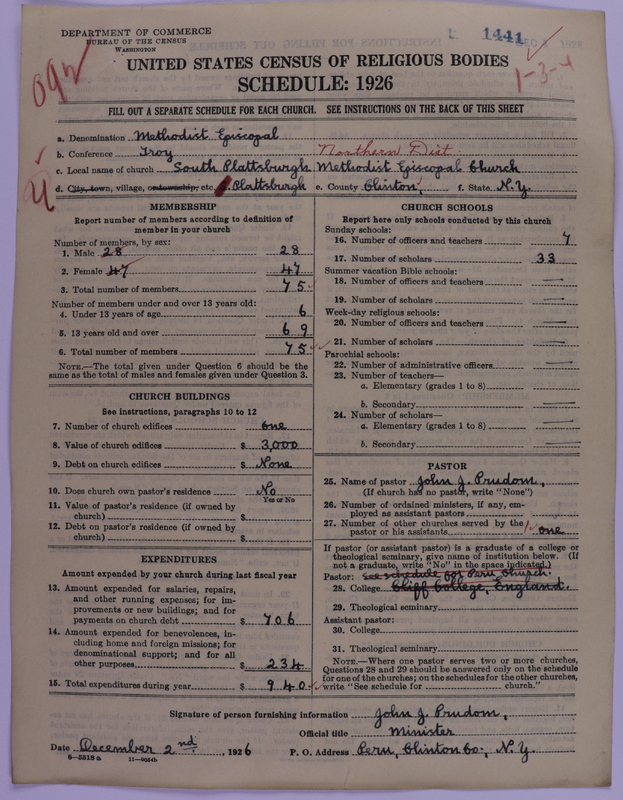 DEPARTMENT OF COMMERCE
BUREAU OF THE CENSUS
WASHINGTON
1441
1-3-4
UNITED STATES CENSUS OF RELIGIOUS BODIES
SCHEDULE: 1926
FILL OUT A SEPARATE SCHEDULE FOR EACH CHURCH. SEE INSTRUCTIONS ON THE BACK OF THIS SHEET
a. Denomination Methodist Episcopal
b. Conference Troy Northern Dist.
c. Local name of church South Plattsburgh Methodist Episcopal Church
d. City, town, village, or township, etc. Plattsburgh e. County Clinton, f. State N.Y.
MEMBERSHIP
Report number of members according to definition of
member in your church
Number of members, by sex:
1. Male 28 28
2. Female 47 47
3. Total number of members 75
Number of members under and over 13 years old:
4. Under 13 years of age 6
5. 13 years old and over 69
6. Total number of members 75
NOTE.—The total given under Question 6 should be
same as the total of males and females given under Question 3.
CHURCH BUILDINGS
See instructions, paragraphs 10 to 12
7. Number of church edifices one
8. Value of church edifices $ 3,000
9. Debt on church edifices $ None
10. Does church own pastor's residence No
Yes or No
11. Value of pastor's residence (if owned by
church) $
12. Debt on pastor's residence (if owned by
church) $
EXPENDITURES
Amount expended by your church during last fiscal year
13. Amount expended for salaries, repairs,
and other running expenses; for im-
provements or new buildings; and for
payments on church debt $ 706
14. Amount expended for benevolences, in-
cluding home and foreign missions; for
denominational support; and for all
other purposes $ 234
15. Total expenditures during year $ 940
CHURCH SCHOOLS
Report here only schools conducted by this church
Sunday schools:
16. Number of officers and teachers 7
17. Number of scholars 33
Summer vacation Bible schools:
18. Number of officers and teachers
19. Number of scholars
Week-day religious schools:
20. Number of officers and teachers
21. Number of scholars
Parochial schools:
22. Number of administrative officers
23. Number of teachers—
a. Elementary (grades 1 to 8)
b. Secondary
24. Number of scholars—
a. Elementary (grades 1 to 8)
b. Secondary
PASTOR
25. Name of pastor John J. Prudom,
(If church has no pastor, write "None")
26. Number of ordained ministers, if any, em-
ployed as assistant pastors
27. Number of other churches served by the
pastor or his assistants one
If pastor (or assistant pastor) is a graduate of a college or
theological seminary, give name of institution below. (If
not a graduate, write "No" in the space indicated.)
Pastor: See schedule for Peru Church.
28. College Cliff College, England.
29. Theological seminary
Assistant pastor:
30. College
31. Theological seminary
NOTE.—Where one pastor serves two or more churches,
Questions 28 and 29 should be answered only on the schedule
for one of the churches; on the schedules for the other churches,
write "See schedule for church."
Signature of person furnishing information John J. Prudom,
Official title Minister
Date December 2nd, 1926 P. O. Address Peru, Clinton Co., N.Y.
8-5518 a 11-9024b